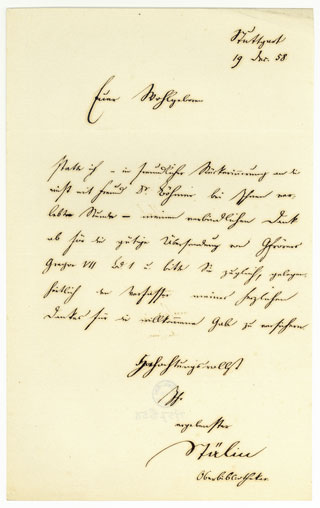 Stuttgart
19 Dec. 58.
Euer Wohlgeboren
statte ich – in freundlicher Rückerinnerung an die
mit Freund Dr. Böhmer bei Ihnen ver-
lebten Stunden – meinen verbindlichen Dank
ab für die gütige Übersendung von Gfrörers
Gregor VII Bd 1 u. bitte Sie zugleich gelegen-
heitlich den Verfasser meines herzlichen
Dankes für die willkommene Gabe zu versichern
Hochachtungsvollst
Ihr
ergebenster
Stälin
Oberbibliothekar